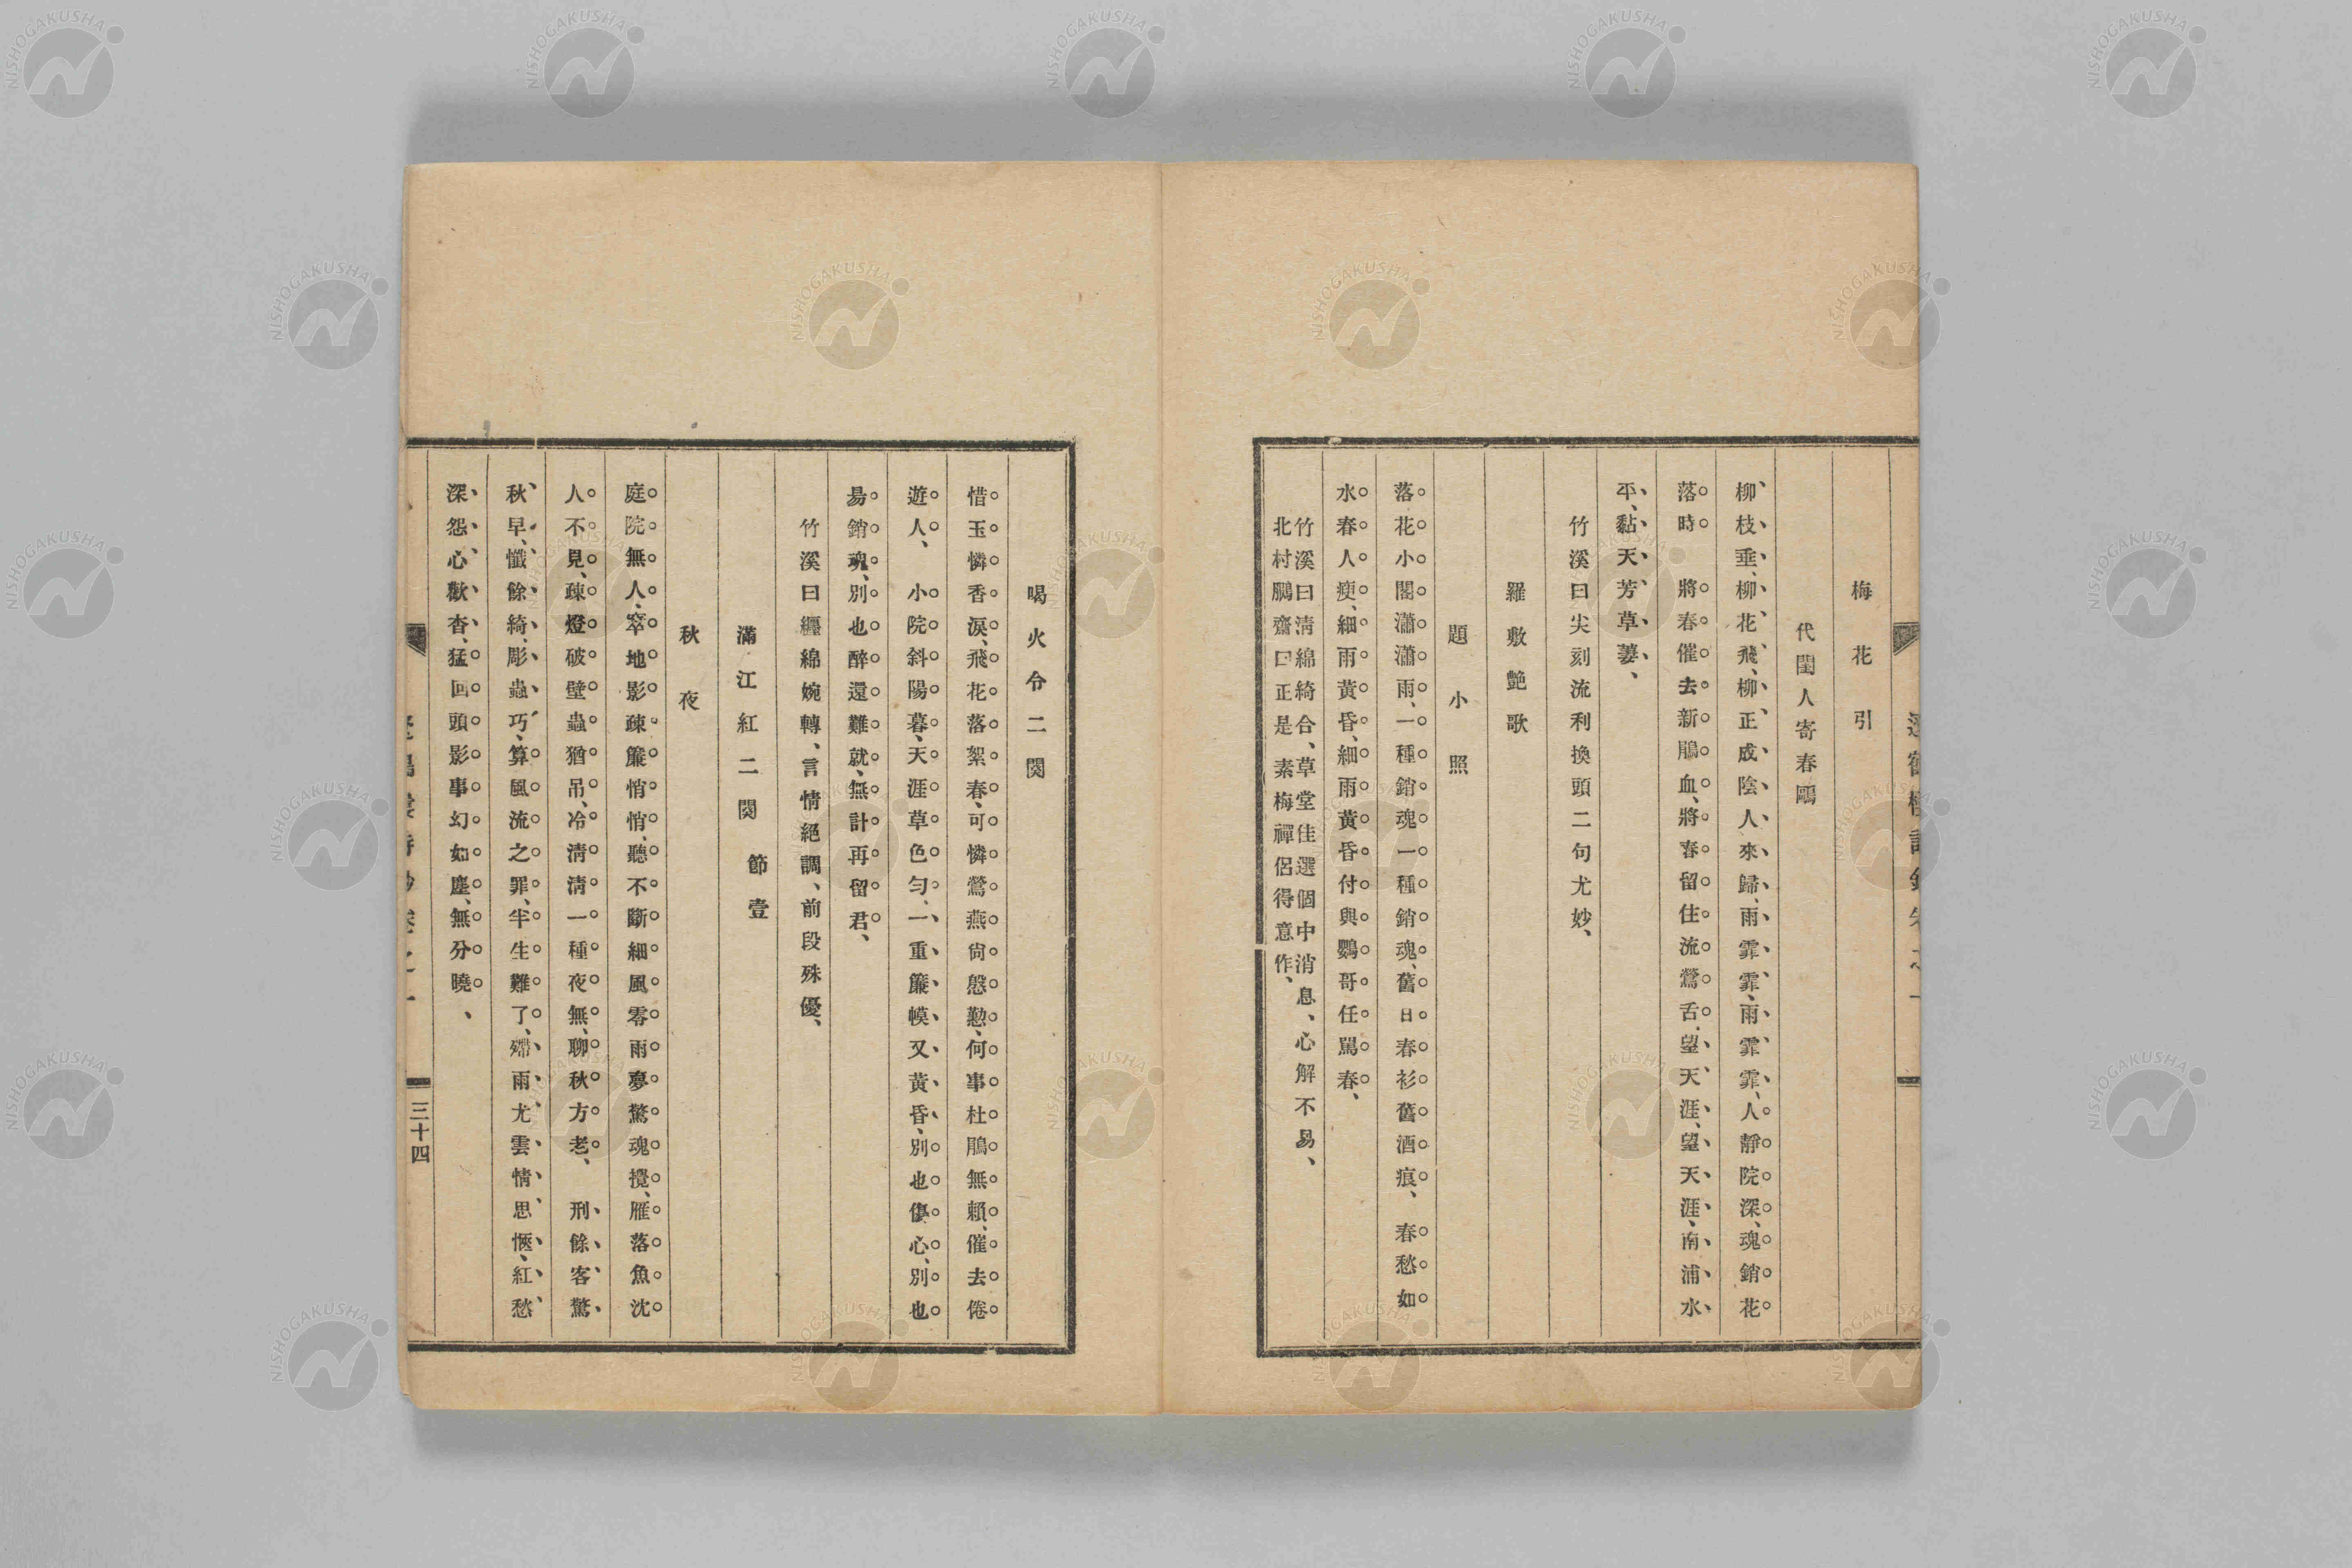 梅花引
代閨人寄春鷗
柳枝垂、柳花飛、柳正成陰人來歸、雨霏霏、雨霏霏、人靜院深、魂銷花
落時　將春催去新鵑血、將春留住流鶯舌、望天涯、望天涯、南浦水
平、黏天芳草萋、
竹溪曰尖刻流利換頭二句尤妙、
羅敷艷歌
題小照
落花小閣瀟瀟雨、一種銷魂一種銷魂、舊日春衫舊酒痕、　春愁如
水春人瘦、細雨黃昏、細雨黃昏付與鸚哥任罵春、
竹溪曰淸綿綺合、草堂佳選個中消息、心解不易、
北村鵬齋曰正是素梅禪侶得意作、
喝火令二闋
惜玉憐香淚、飛花落絮春、可憐鶯燕尙慇懃、何事杜鵑無賴、催去倦
遊人、　小院斜陽暮、天涯草色勻、一重簾幙又黃昏、別也傷心、別也
易銷魂、別也醉還難就、無計再留君、
竹溪曰纒綿婉轉、言情絕調、前段殊優、
滿江紅二闋　節壹
秋夜
庭院無人、窣地影疎簾悄悄、聽不斷細風零雨夢驚魂攪、雁落魚沈
人不見、疎燈破壁蟲猶吊、冷淸淸一種夜無聊、秋方老、　刑餘客驚
秋早、懺餘綺、彫蟲巧、算風流之罪、半生難了、殢雨尤雲情思愜、紅愁
深怨心歡杳、猛回頭影事幻如塵、無分曉、
三十四
NISHOGAKUSHA